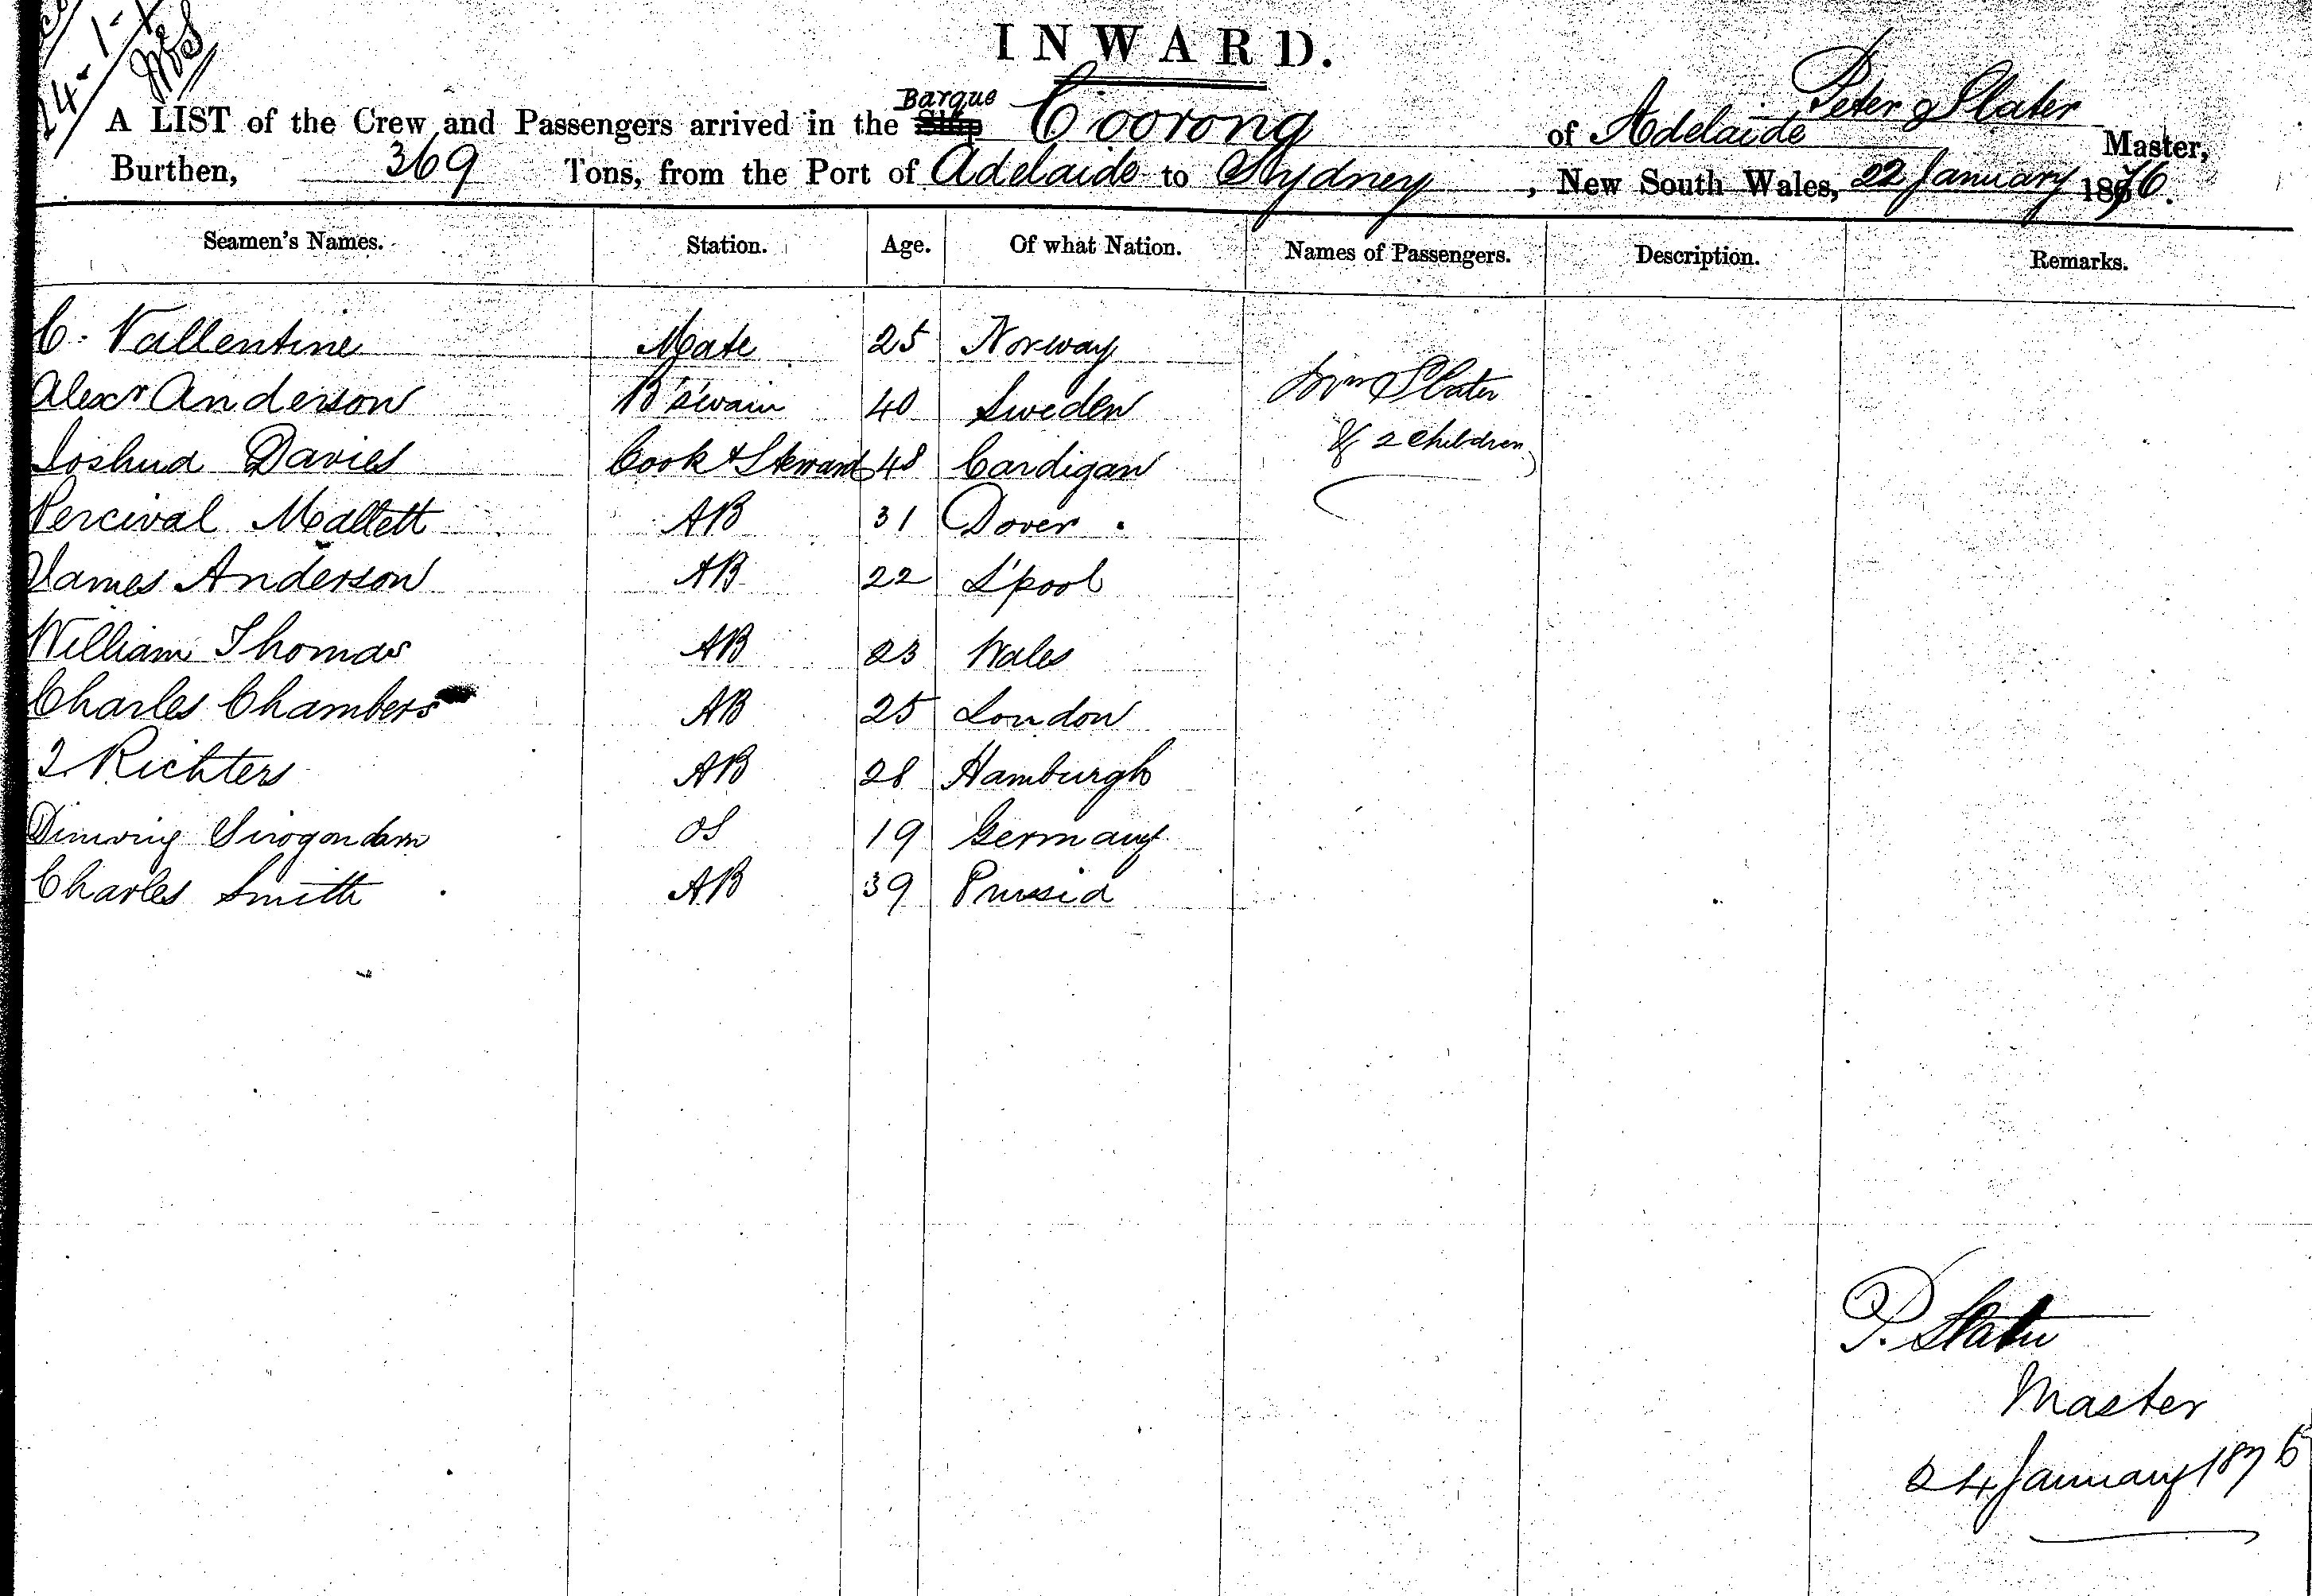 INWARD.
A LIST of the Crew and Passengers arrived in the Barque Coorong of Adelaide Peter Slater Master,
Burthen, 369 Tons, from the Port of Adelaide to Sydney, New South Wales, 22 January 1876.
Seamen's Names. Station. Age. Of what Nation. Names of Passengers. Description. Remarks.
C. Vallentine Mate 25 Norway
Alexr Anderson B'swain 40 Sweden Slater
Joshua Davies Cook & Steward 48 Cardigan & 2 Children
Percival Mallett AB 31 Dover.
James Anderson AB 22 L'pool
William Thomas AB 23 Wales
Charles Chambers AB 25 London
Richters AB 28 Hamburgh
OS 19 Germany
Charles Smith AB 39 Prussia
P. Slater
Master
24 January 1876